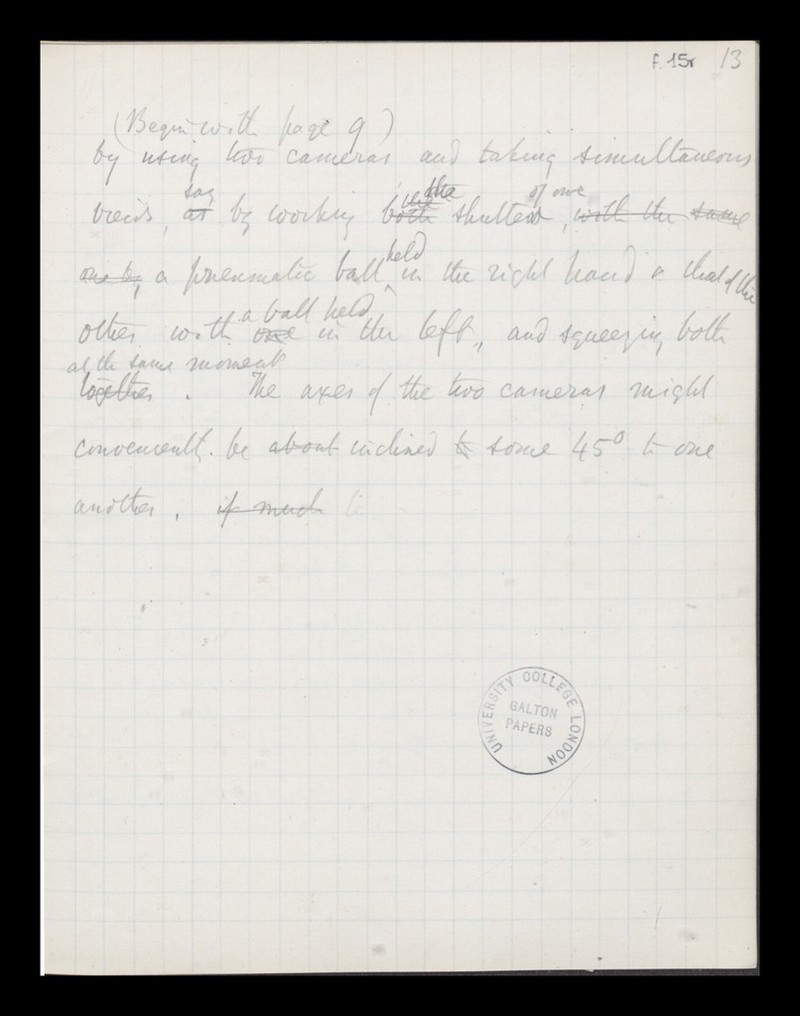 f. 15r 13
(Begin with page 9)
by using two cameras and taking simultaneous
say the the of one
views, as by working both shutters, with the same
held
one by a pneumatic ball in the right hand & that of the
a ball held
other with one in the left, and squeezing both
at the same moment
together. The axes of the two cameras might
conveniently be about inclined to some 45° to one
another. if much
UNIVERSITY COLLEGE LONDON
GALTON
PAPERS